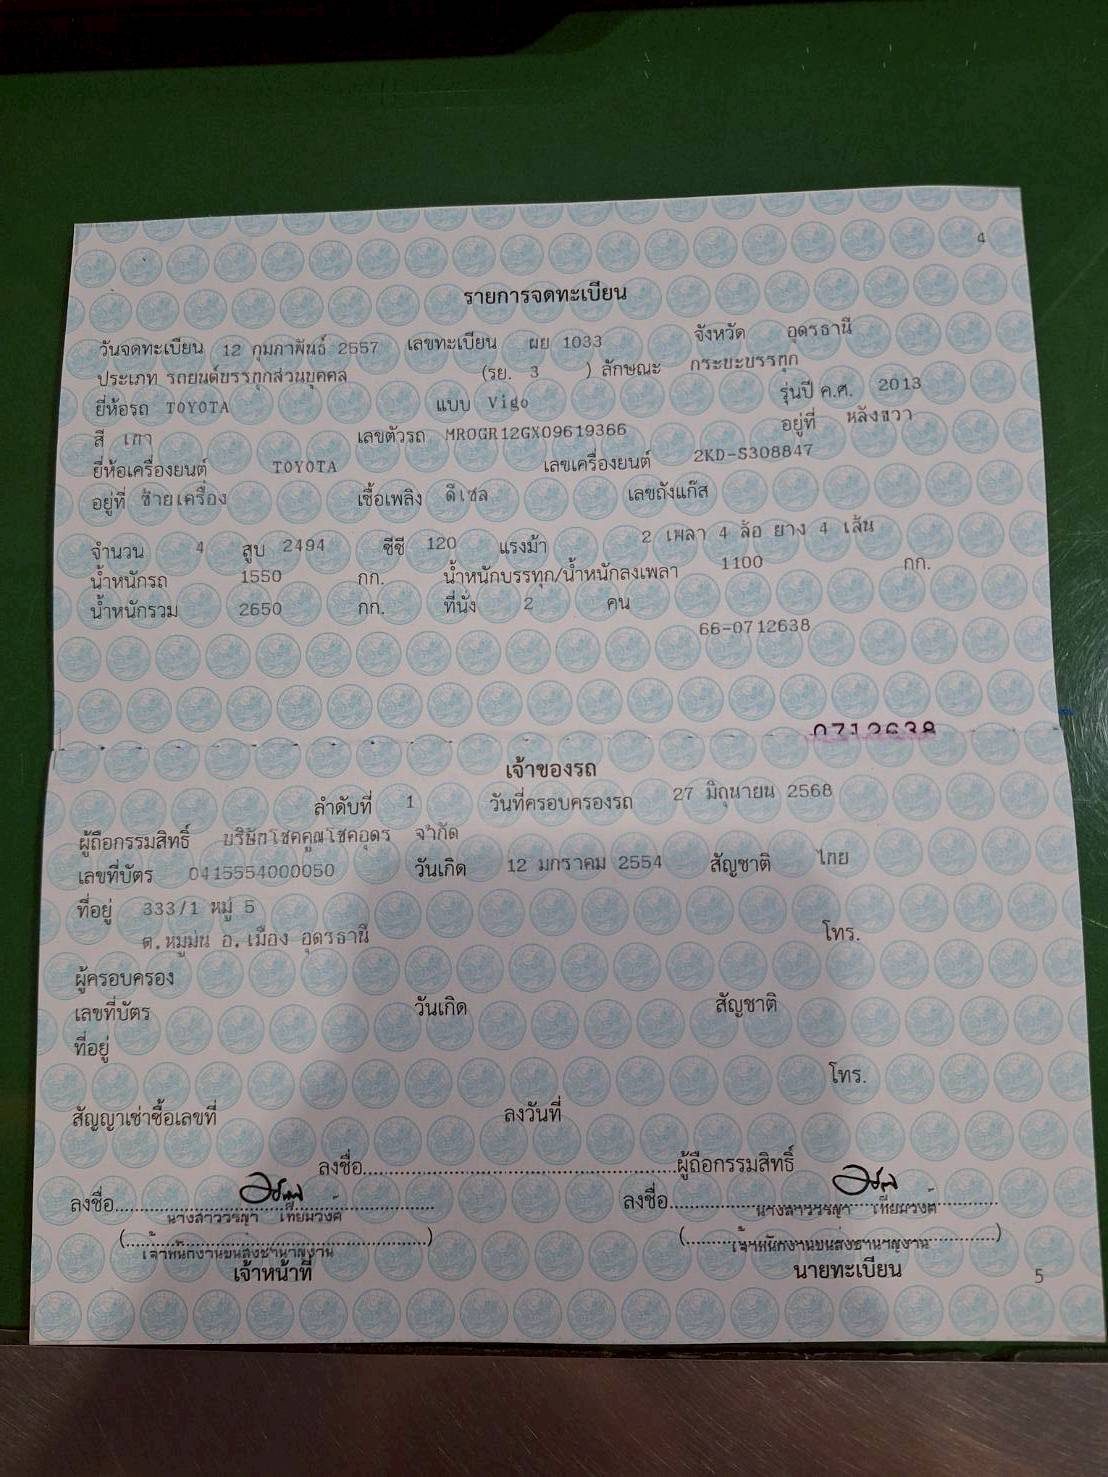 4
รายการจดทะเบียน
วันจดทะเบียน 12 กุมภาพันธ์ 2557 เลขทะเบียน ผย 1033 จังหวัด อุดรธานี
ประเภท รถยนต์บรรทุกส่วนบุคคล (รย. 3 ) ลักษณะ กระบะบรรทุก
ยี่ห้อรถ TOYOTA แบบ Vigo รุ่นปี ค.ศ. 2013
สี เทา เลขตัวรถ MROGR12GX09619366 อยู่ที่ หลังขวา
ยี่ห้อเครื่องยนต์ TOYOTA เลขเครื่องยนต์ 2KD-S308847
อยู่ที่ ซ้ายเครื่อง เชื้อเพลิง ดีเซล เลขถังแก๊ส
จำนวน 4 สูบ 2494 ซีซี 120 แรงม้า 2 เพลา 4 ล้อ ยาง 4 เส้น
น้ำหนักรถ 1550 กก. น้ำหนักบรรทุก/น้ำหนักลงเพลา 1100 กก.
น้ำหนักรวม 2650 กก. ที่นั่ง 2 คน
66-0712638
0712638
เจ้าของรถ
ลำดับที่ 1 วันที่ครอบครองรถ 27 มิถุนายน 2568
ผู้ถือกรรมสิทธิ์ บริษัทโชคคูณโชคอุดร จำกัด
เลขที่บัตร 0415554000050 วันเกิด 12 มกราคม 2554 สัญชาติ ไทย
ที่อยู่ 333/1 หมู่ 5
ต.หมูม่น อ.เมือง อุดรธานี โทร.
ผู้ครอบครอง
เลขที่บัตร วันเกิด สัญชาติ
ที่อยู่
โทร.
สัญญาเช่าซื้อเลขที่ ลงวันที่
ลงชื่อ..........ผู้ถือกรรมสิทธิ์
ลงชื่อ.......... ลงชื่อ..........
นางสาววรญา เทียมวงค์ นางสาววรญา เทียมวงค์
(..........) (..........)
เจ้าพนักงานขนส่งชำนาญงาน เจ้าพนักงานขนส่งชำนาญงาน
เจ้าหน้าที่ นายทะเบียน
5